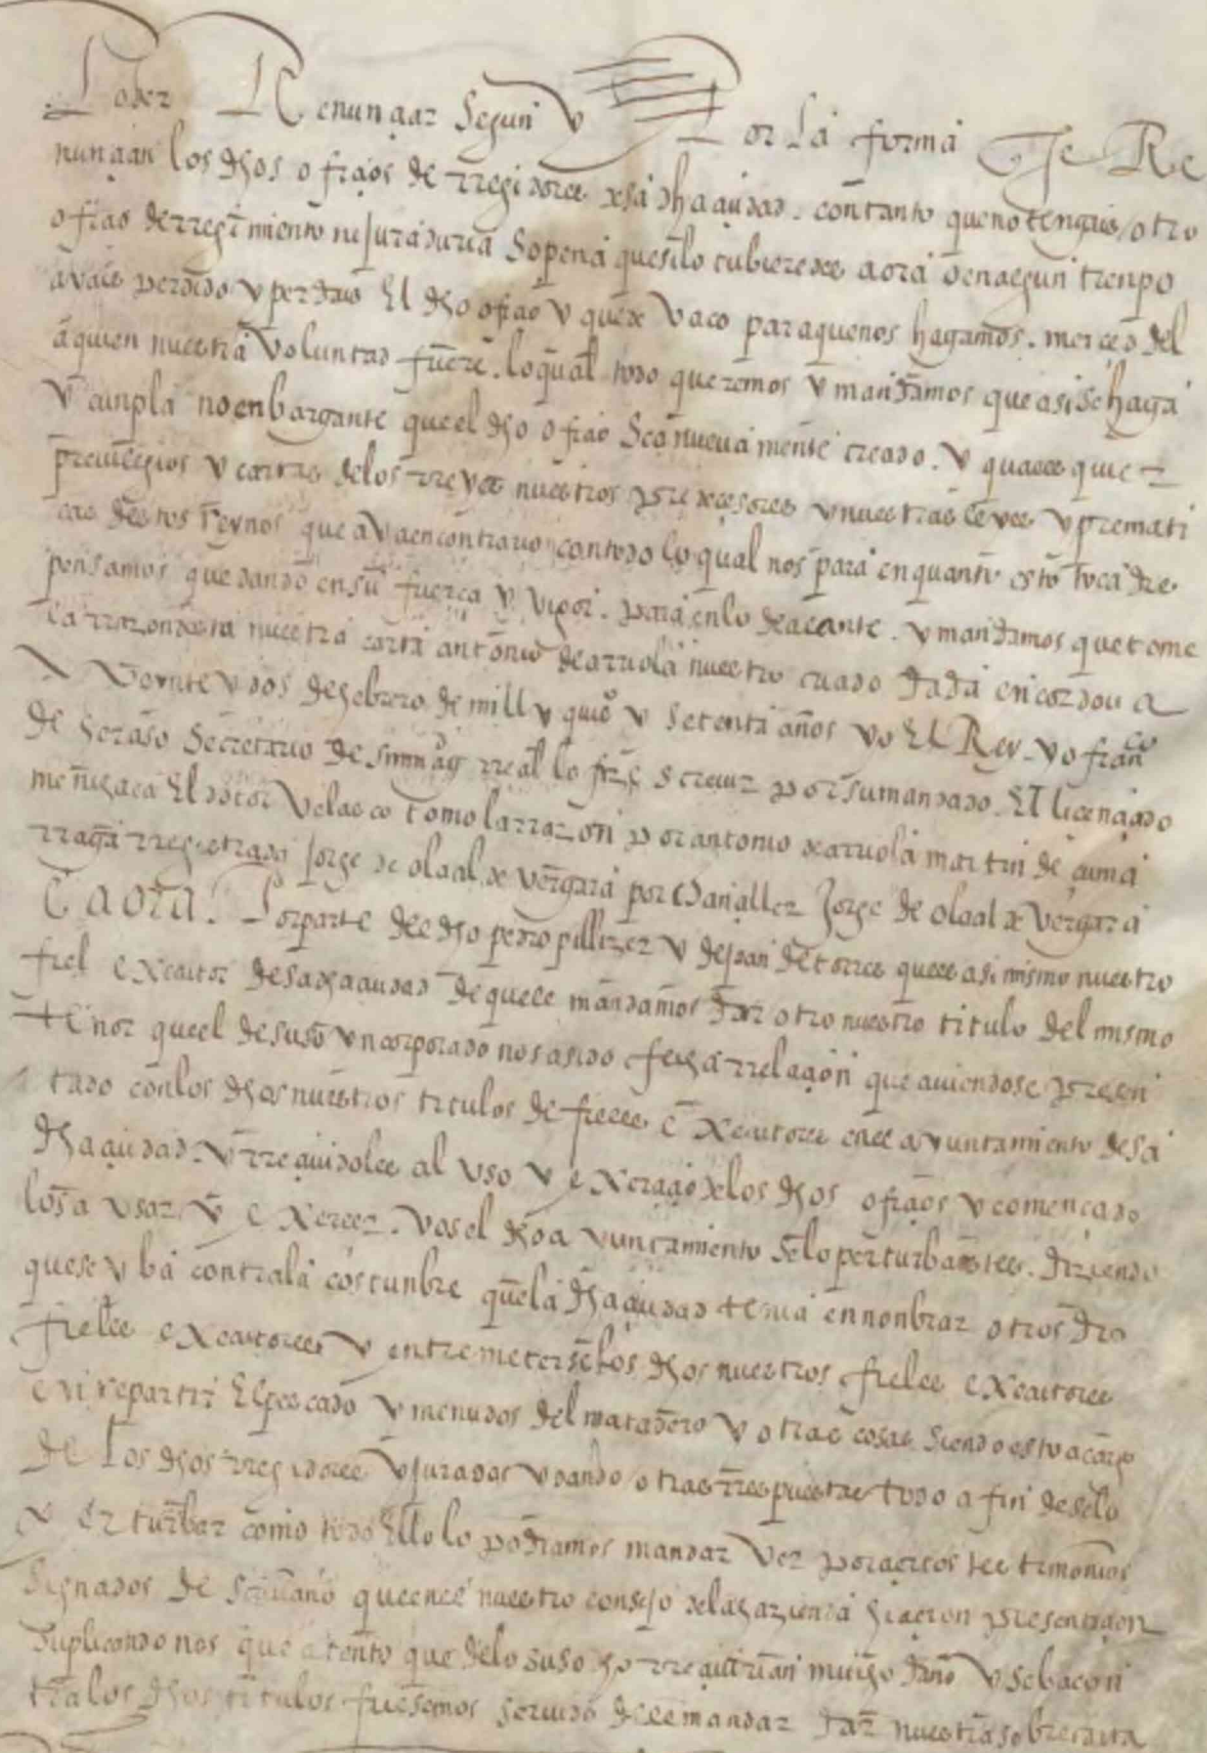 Poder Renunçiar segun y Por la forma que se Re
nunçian los dhos ofiçios de rregidores desa dha çiudad. con tanto que no tengais otro
ofiçio de rregimiento ni juraduria so pena que si lo tubieredes aora o en algun tienpo
ayais perdido y perdais El dho ofiçio y quede vaco para que nos hagamos. merced del
a quien nuestra voluntad fuere. lo qual todo queremos y mandamos que asi se haga
y cunpla no enbargante que el dho ofiçio sea nueva mente creado. y quales quier
previlegios y cartas de los rreyes nuestros predeçesores y nuestras leyes y premati
cas destos rreynos que aya en contrario con todo lo qual nos para en quanto esto toca dis
pensamos quedando en su fuerça y vigor. para en lo de adelante. y mandamos que tome
la rrazon desta nuestra carta antonio de arriola nuestro criado dada en cordova a
veynte y dos de hebrero de mill y quios y setenta años yo El Rey. yo franco
de heraso secretario de su mag rreal lo fize screvir por su mandado. El liçençiado
menchaca El dotor velasco tomo la rrazon por antonio de arriola martin de çuma
rraga rregistrada jorge de olaal de vergara por chançiller Jorge de olaal de vergara
E aora. Por parte del dho pedro pillizer y de joan de torres que es asi mismo nuestro
fiel executor desa dha çiudad de que le mandamos dar otro nuestro titulo del mismo
tenor que el de suso yncorporado nos a sido fecha rrelaçion que aviendose presen
tado con los dhos nuestros titulos de fieles executores en el ayuntamiento desa
dha çiudad. y rreçividoles al uso y exerçiçio de los dhos ofiçios y començado
los a usar y exerçer. vos el dho ayuntamiento se lo perturbastes. diziendo
que se yba contra la costunbre que la dha çiudad tenia en nonbrar otros dos
fieles executores y entremeterse los dhos nuestros fieles executores
en repartir El pescado y menudos del matadero y otras cosas siendo esto a cargo
de los dhos rregidores y jurados y dando otras rrespuestas todo a fin de se lo
perturbar como todo Ello lo podiamos mandar ver por çiertos testimonios
signados de scrivano que en el nuestro consejo de la hazienda hiçieron presentaçion
suplicando nos que atento que de lo suso dho rreçibirian mucho daño y se ba con
tra los dhos titulos fuesemos servido de les mandar dar nuestra sobrecarta